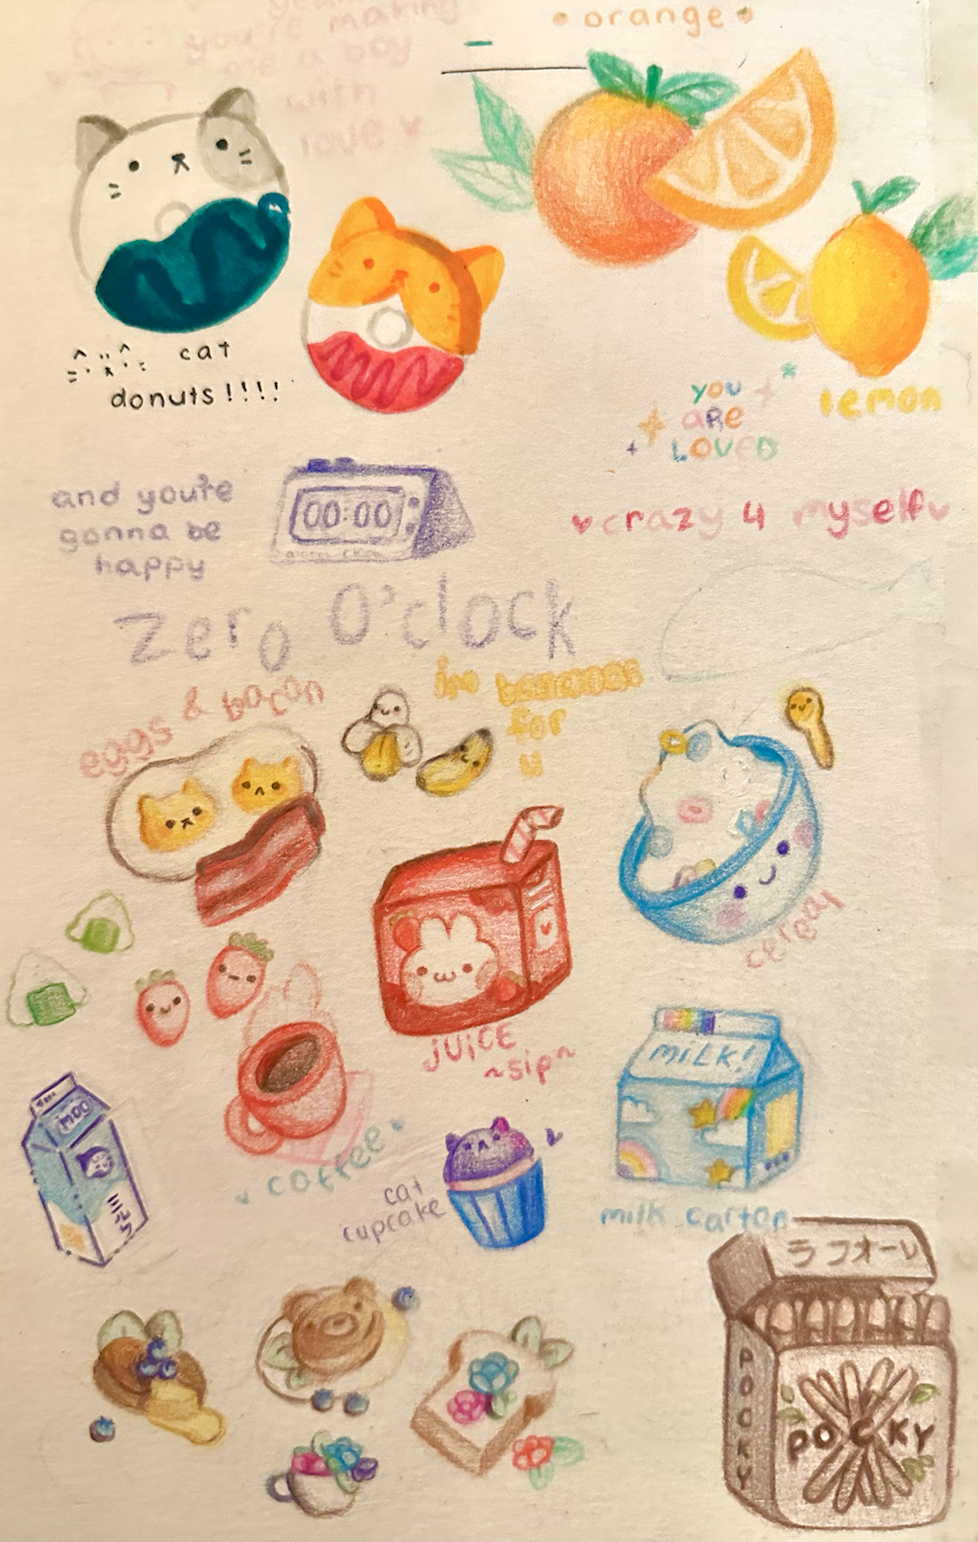 you're making
me a boy
with
love
orange
cat
donuts!!!!
YOU
ARE
LOVED
lemon
and you're
gonna be
happy
00:00
crazy 4 myself
Zero O'clock
eggs & bacon
im bananas
for
u
cereal
JUICE
~sip~
MILK!
MOO
coffee
cat
cupcake
milk carton
POCKY
POCKY